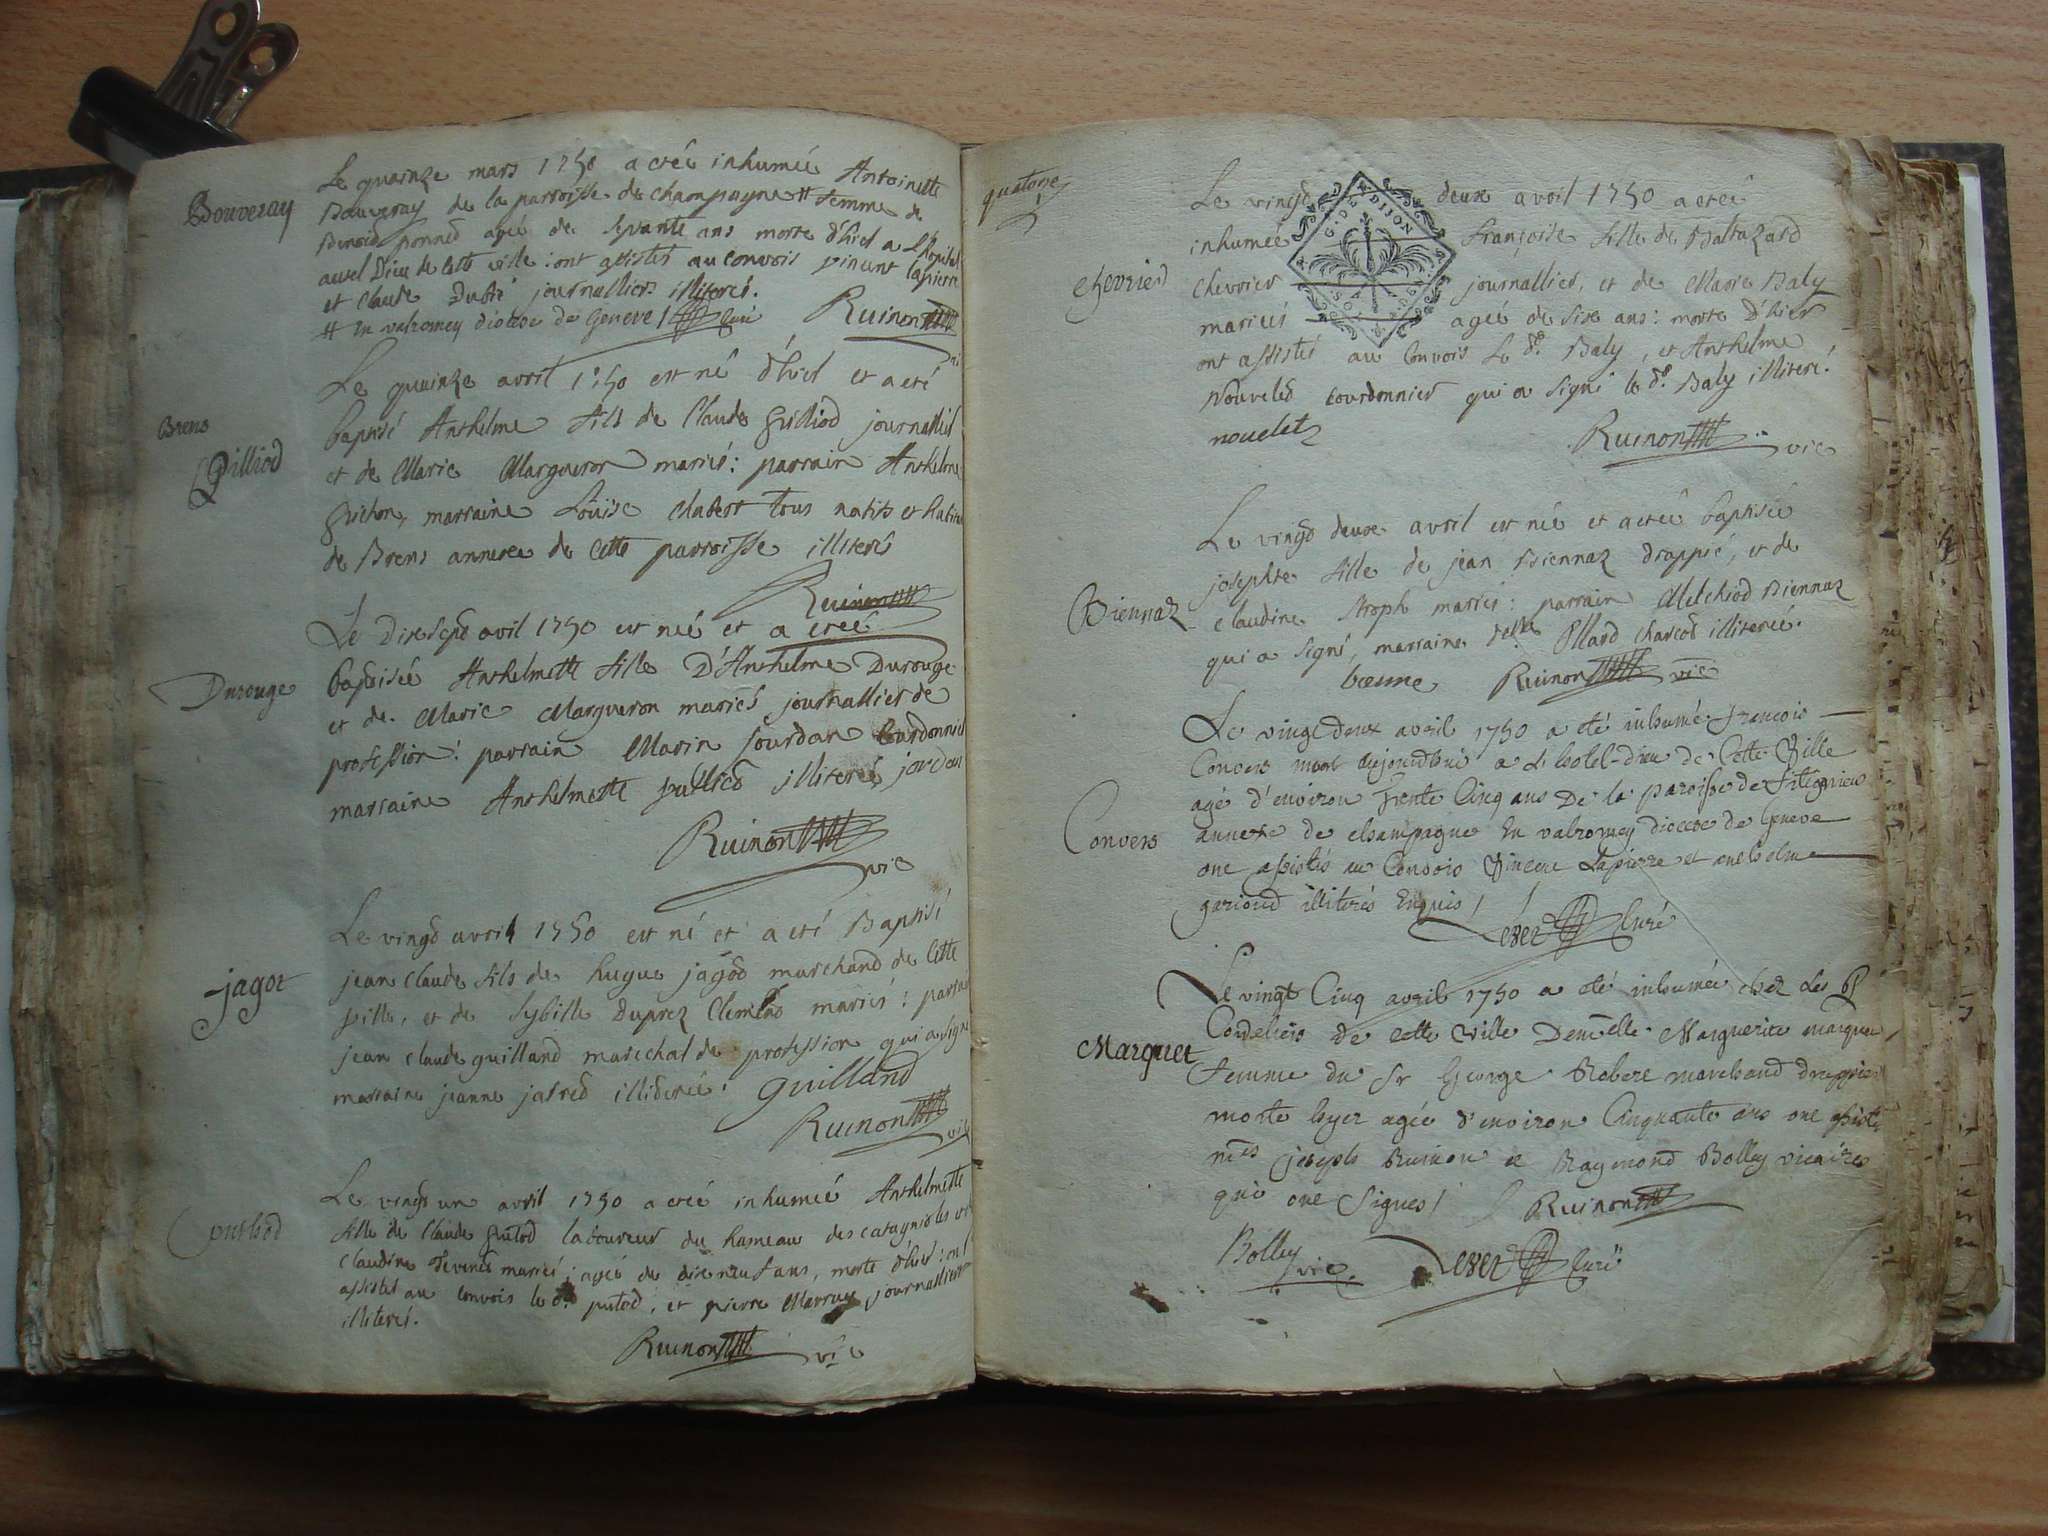 Bouveray
Le quainze mars 1750 a etée inhumée Antoinette
Bauveray de la parroisse de champagne # femme de
Benoid ponned agée de sepvante ans morte d'hier a l'hopital
autel Dieu de cette ville : ont assistés au convois vincent lapierre
et claude Dufré journalliers illiterés.
# en valromey diocese de Geneve / curé Ruinon
Brens
Gilliod
Le quainze avril 1750 est né d'hiel et a eté
baptisé Anthelme fils de Claude Gilliod journallié
et de Marie Margueron mariés : parrain Anthelme
Guichon, marraine Loüise Clabert tous natifs et habitants
de Brens annexe de cette parroisse illiterés
Ruinon
Durouge
Le dixsepd avril 1750 est née et a etée
baptisée Anthelmette fille D'Anthelme Durouge
et de Marie Margueron mariés journallier de
profession : parrain Marin Jourdan Courdonnier
marraine Anthelmette Julliod illiterée jordan
Ruinon
vic
jagot
Le vingd avril 1750 est né et a eté Baptisé
jean claude fils de hugue jagod marchand de cette
ville, et de Sybille Duprez Clemlas mariés : parrain
jean claude guilland marechal de profession qui a signé
marraine jeanne jatred illiderée. guilland
Ruinon vic
puthod
Le vingd un avril 1750 a etée inhumée Anthelmette
fille de Claude putod laboureur du hameau des catagnioles et
Claudine Tevened mariés ; agée de dix neuf ans, morte d'hier : ont
assistés au convois le d. putod, et pierre Marruy journallier
illiterés.
Ruinon vic
quatorze
G. DE DIJON
chevrier
Le vingd deux avril 1750 a etée
inhumée françoise fille de Baltazard
chevrier journallier, et de Marie Baly
mariés agée de six ans : morte d'hier
ont assistés au Convois le d. Baly, et Anthelme
Nouveled courdonnier qui a signé le d. Baly illiteré.
nouelet
Ruinon vic
Biennaz
Le vingd deux avril est née et a etée baptisée
josephte fille de jean Biennaz drappié, et de
claudine Stroph mariés : parrain Melchiod Biennaz
qui a signé, marraine delle Ollard charcot illiterée.
boeume Ruinon vic
Convers
Le vingt Deux avril 1750 a eté inhumé françois
Convers mort aujourdhui a l hotel-dieu de Cette Ville
agé d'environ trente Cinq ans De la paroisse de fitignieu
annexe de champagne En valromey diocese de Geneve
ont assistés au Convois Vincent Lapierre et anthelme
gariond illiterés Enquis /
curé
Marquet
Le vingt Cinq avril 1750 a eté inhumée chez les PP
Cordeliers de cette ville Demelle Marguerite marquet
femme du Sr George Robert marchand drappier
morte hyer agée d'environ Cinquante ans ont assistés
mes joseph Ruinon et Raymond Bolley vicaires
qui ont signés / Ruinon
Bolley
vic. curé